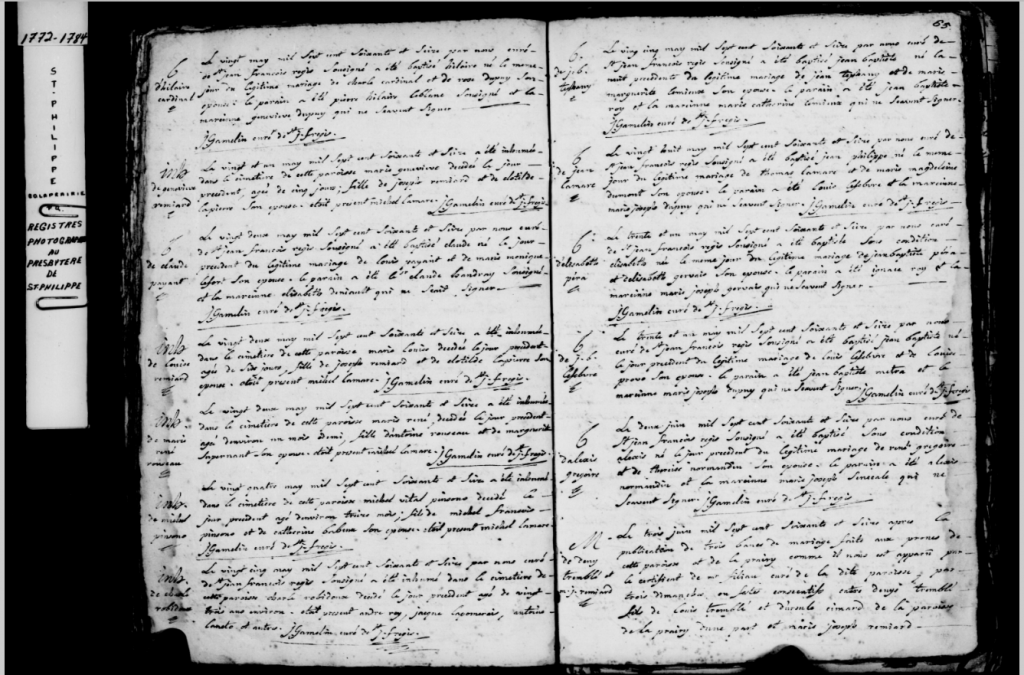 1772-1784
ST-PHILIPPE
REGISTRES
PHOTOGRAPHIÉ
AU
PRESBYTERE
DE
ST-PHILIPPE
B
d'hilaire
cardinal
Le vingt may mil Sept cent Soixante et Seize par nous curé
de st jean francois regis Sousigné a été baptisé hilaire né le meme
jour du legitime mariage de charle cardinal et de rose dupuy Son
epouse. le parain a été pierre hilaire leblanc Sousigné et la
maraine genevieve dupuy qui ne Seavent Signer
J Gamelin curé de st j. f. regis.
inh
de genevieve
remiard
Le vingt et un may mil Sept cent Soixante et Seize a été inhumée
dans le cimetiere de cette paroisse marie genevieve decedée le jour
precedent, agée de cinq jours, fille de joseph remiard et de clotilde
lapierre Son epouse. etoit present michel lamare. J Gamelin curé de st j. f. regis
B
de claude
payant
Le vingt deux may mil Sept cent Soixante et Seize par nous curé
de st jean francois regis Sousigné a été baptisé claude né le jour
precedent du legitime mariage de louis payant et de marie monique
lefort Son epouse. le parain a été le sr claude landray Sousigné
et la maraine elisabeth deniault qui ne Scait Signer
J Gamelin curé de st j. f. regis.
inh
de louise
remiard
Le vingt deux may mil Sept cent Soixante et Seize a été inhumée
dans le cimetiere de cette paroisse marie louise decedée le jour precedent
agée de Six jours, fille de joseph remiard et de clotilde lapierre Son
epouse. etoit present michel lamare. J Gamelin curé de st j. f. regis
inh
de marie
rené
rouseau
Le vingt deux may mil Sept cent Soixante et Seize a été inhumée
dans le cimetiere de cette paroisse marie rené, decedée le jour precedent
agée denviron un mois demi, fille d'antoine rouseau et de marguerite
Supernant Son epouse. etoit present michel lamare. J Gamelin curé de st j. f. regis
inh
de michel
pinsono
Le vingt quatre may mil Sept cent Soixante et Seize a été inhumé
dans le cimetiere de cette paroisse michel vital pinsono decedé le
jour precedent agé denviron treize mois; fils de michel francois
pinsono et de catherine babeux Son epouse. etoit present michel lamare.
J Gamelin curé de st j. f. regis.
inh
de charle
robidoux
Le vingt cinq may mil Sept cent Soixante et Seize par nous curé
de st jean francois regis Sousigné a été inhumé dans le cimetiere de
cette paroisse charle robidoux decedé le jour precedent agé de vingt
trois ans environ. etoit present andre roy, jacque laponerais, antoine
et autres. J Gamelin curé de st j. f. regis.
65
B
de j. b.
Le vingt cinq may mil Sept cent Soixante et Seize par nous curé de
St jean francois regis Sousigné a été baptisé jean baptiste né la
nuit precedente du legitime mariage de jean et de marie
marguerite lemieux Son epouse. le parain a été jean baptiste
roy et la maraine marie catherine lemieux qui ne Seavent Signer.
J Gamelin curé de st j. f. regis
B
de jean
lamare
Le vingt huit may mil Sept cent Soixante et Seize par nous curé de
St jean francois regis Sousigné a été baptisé jean philippe né le meme
jour du legitime mariage de thomas lamare et de marie magdeleine
dumont Son epouse. le parain a été louis lefebvre et la maraine
marie joseph dupuy qui ne Seavent Signer. J Gamelin curé de st j. f. regis
B
d'elisabeth
pera
Le trente et un may mil Sept cent Soixante et Seize par nous curé
de St jean francois regis Sousigné a été baptisée Sous condition
elisabeth née le meme jour du legitime mariage de jean baptiste pera
et d'elisabeth gervais Son epouse. le parain a été ignace roy et la
maraine marie joseph gervais qui ne Seavent Signer.
J Gamelin curé de st j. f. regis.
B
de j. b.
lefebvre
Le trente et un may mil Sept cent Soixante et Seize par nous
curé de st jean francois regis Sousigné a été baptisé jean baptiste né
le jour precedent du legitime mariage de louis lefebvre et de louise
provo Son epouse. le parain a été jean baptiste metra et la
maraine marie joseph dupuy qui ne Seavent Signer. J Gamelin curé de st j. f. regis
B
d'alexis
gregoire
Le deux juin mil Sept cent Soixante et Seize par nous curé de
St jean francois regis Sousigné a été baptisé Sous condition
alexis né le jour precedent du legitime mariage de rené gregoire
et de therese normandin Son epouse. le parain a été alexis
normandin et la maraine marie joseph Senecale qui ne
Seavent Signer. J Gamelin curé de st j. f. regis
M
de denys
tremblé et
m. j. remiard
Le trois juin mil Sept cent Soixante et Seize apres la
publication de trois bancs de mariage faite aux prones de
cette paroisse et de la prairy comme il nous est apparu par
le certificat de mr filiau curé de la dite paroisse, par
trois dimanches ou fetes consecutifs entre denys tremblé
fils de louis tremblé et d'ursule cimard de la paroisse
de la prairy d'une part et marie joseph remiard